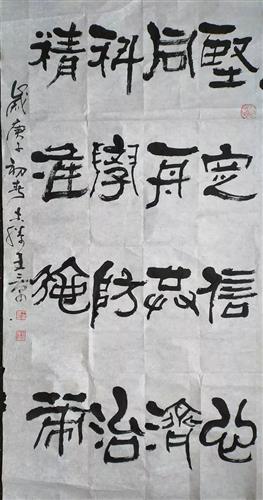 堅定信心
同舟共濟
科學防治
精准施策
歲庚子初春